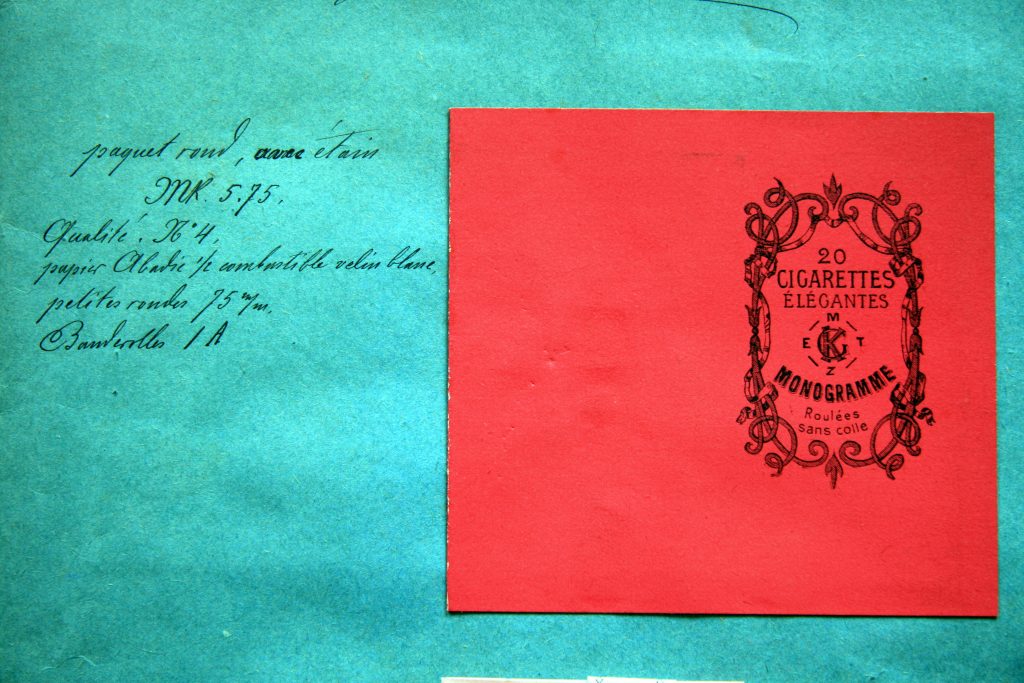 paquet rond, avec étain
MK. 5.75.
Qualité. N° 4.
papier Abadie s/c combustible velin blanc,
petites rondes 75 m/m.
Banderolles 1 A
20
CIGARETTES
ÉLÉGANTES
M
E GK T
Z
MONOGRAMME
Roulées
sans colle